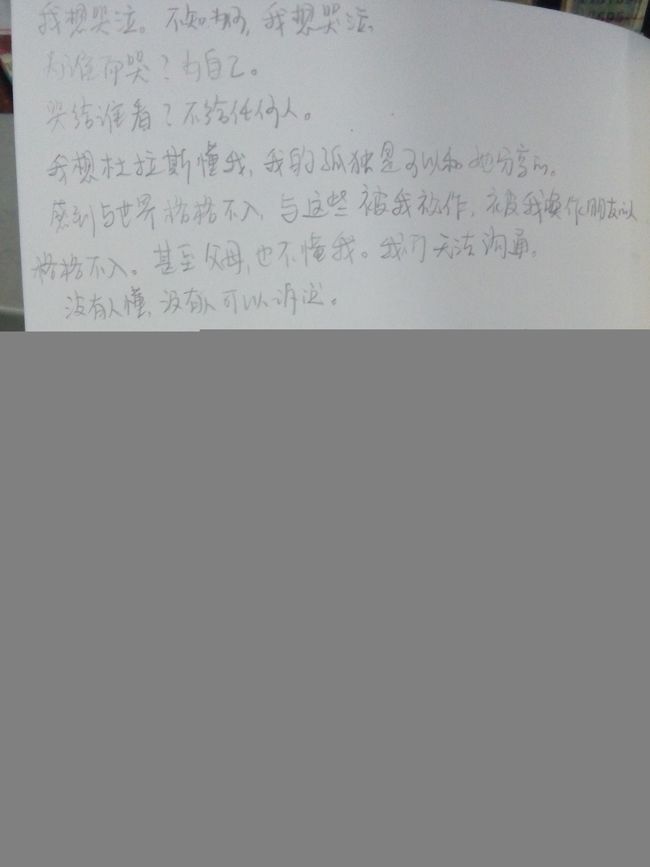 我想哭泣。不知为何,我想哭泣
为谁而哭?为自己。
哭给谁看?不给任何人。
我想杜拉斯懂我,我的孤独是可以和她分享的。
感到与世界格格不入,与这些被我视作,被我唤作朋友的
格格不入。甚至父母,也不懂我。我们无法沟通。
没有人懂,没有人可以诉说。